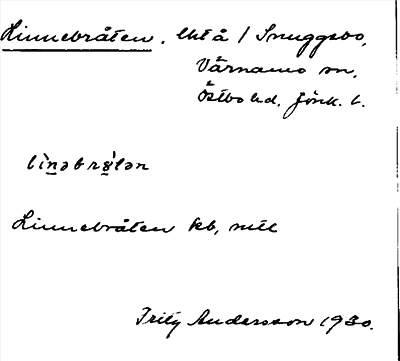 Linnebråten, lht å / Snuggsbo,
Värnamo sn,
Östbo hd, Jönk. l.
lìnəbrå̀tən
Linnebråten kb, mtl
Fritz Andersson 1930.